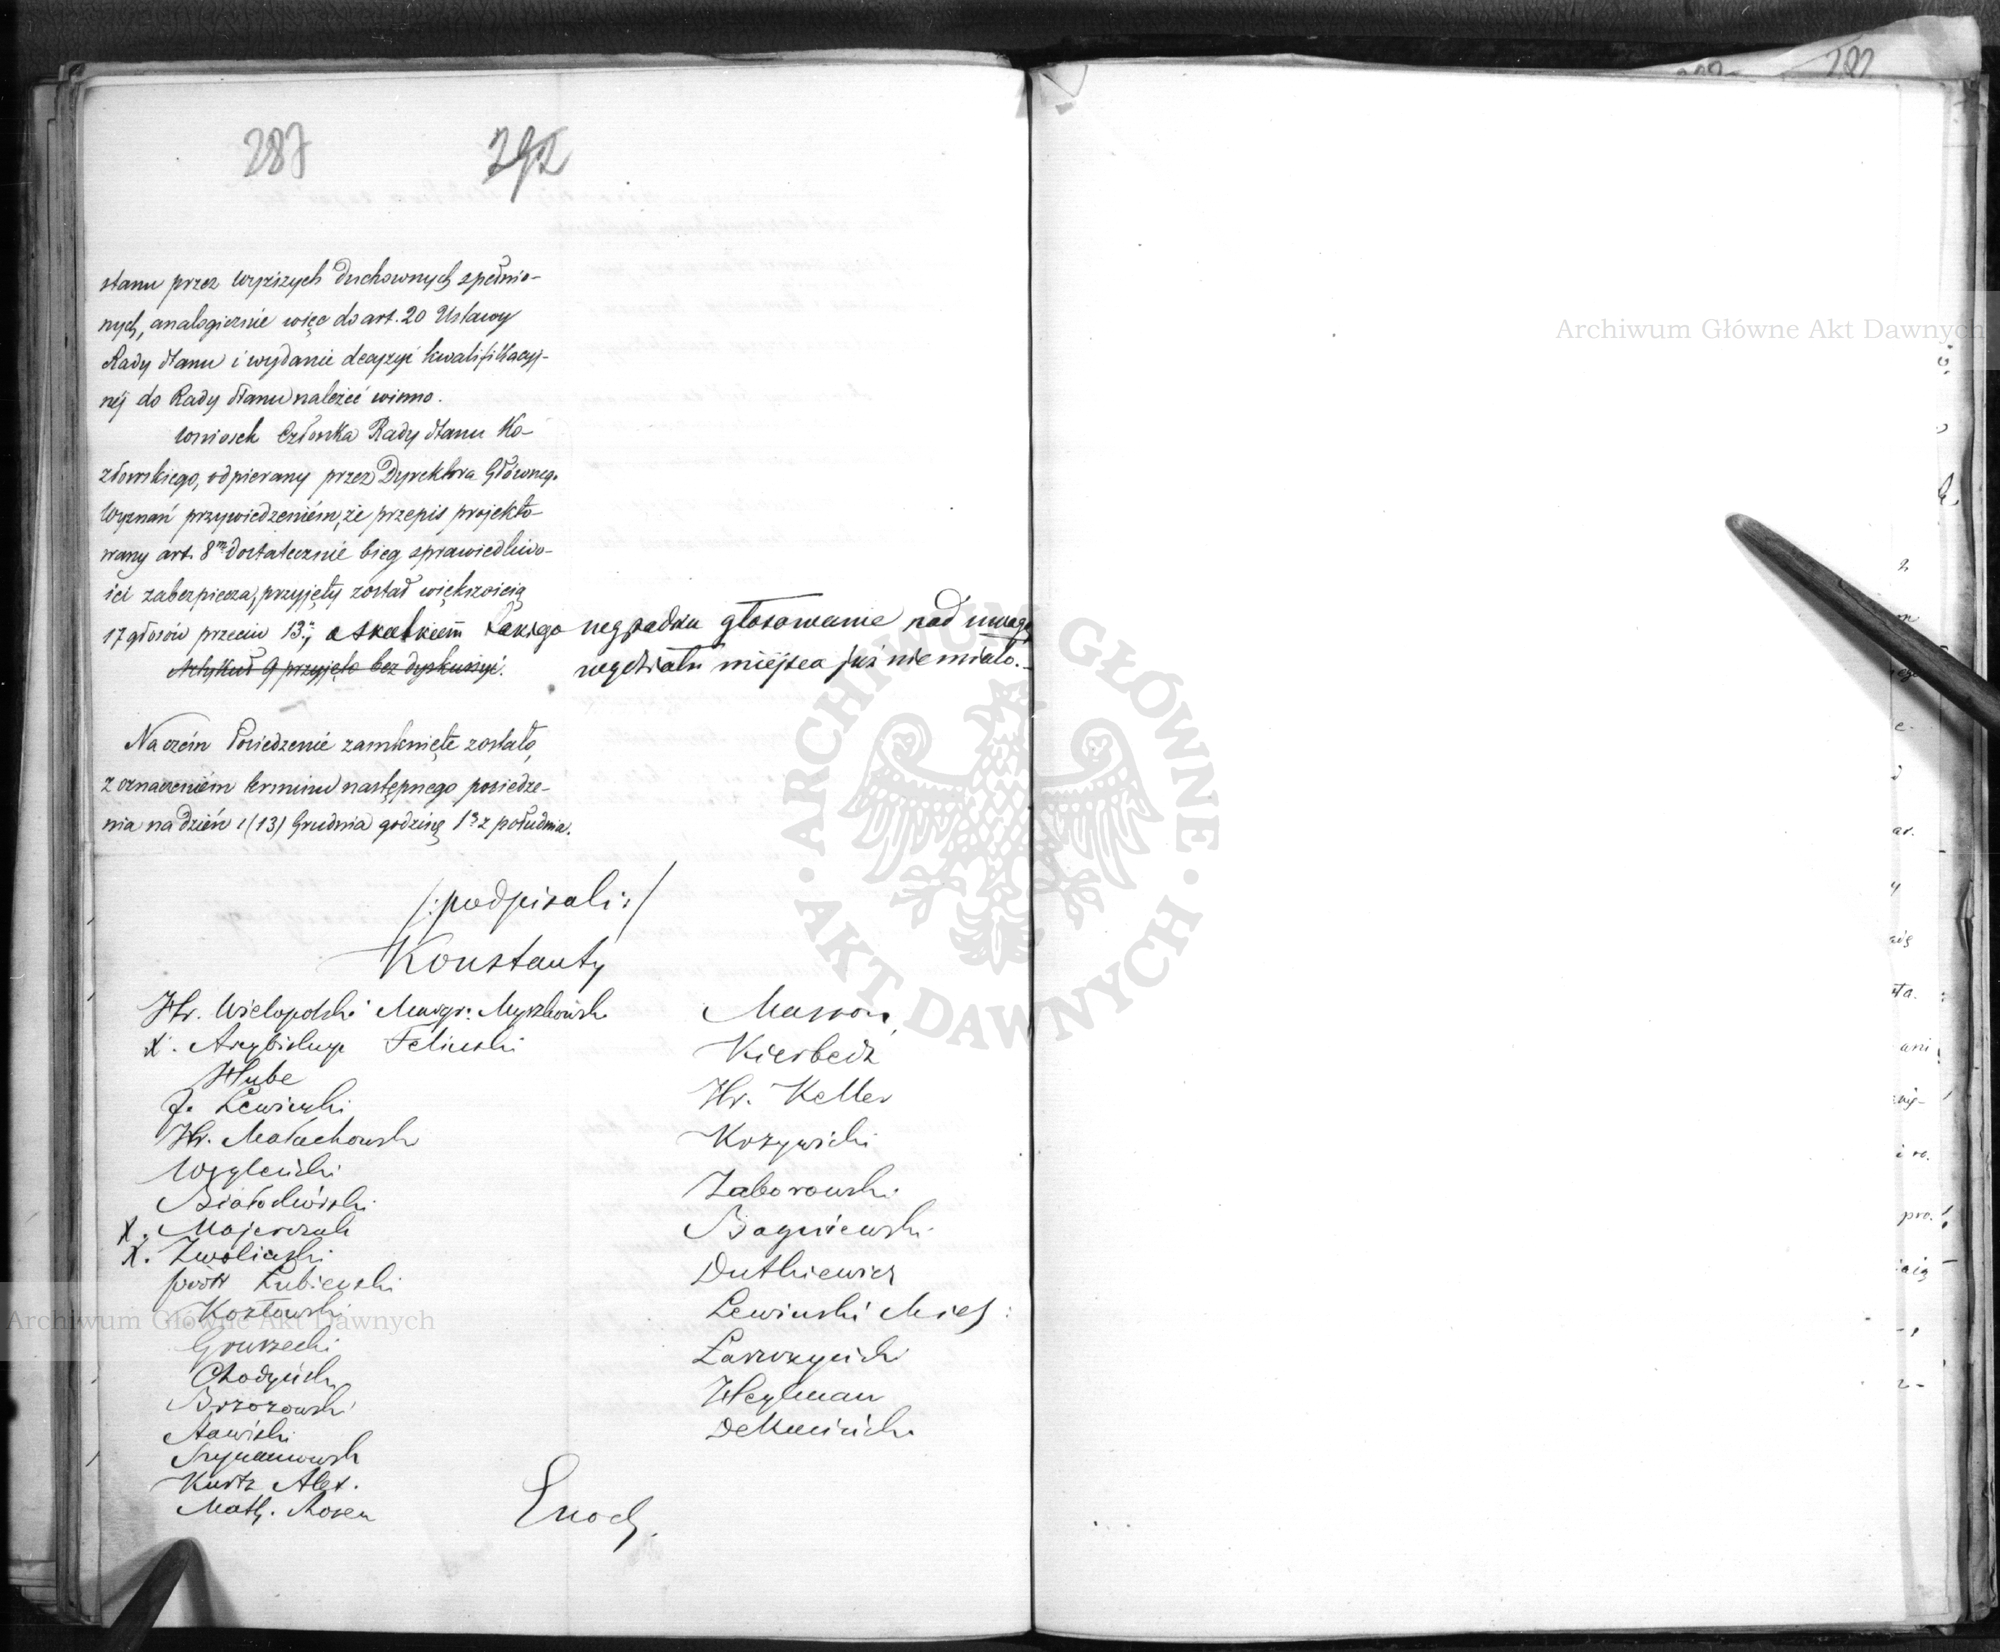 287 292
stanu przez wyższych duchownych spełnio-
nych, analogicznie więc do art. 20 Ustawy
Rady Stanu i wydanie decyzyi kwalifikacyj-
néj do Rady Stanu należéć winno.
Wniosek Członka Rady Stanu Ko-
złowskiego, odpierany przez Dyrektora Główneg.
Wyznań przywiedzeniem, że przepis projekto-
wany art. 8m dostatecznie bieg sprawiedliwo-
ści zabezpiecza, przyjęty został większością
17 głosów przeciw 13; a skutkiem takiego wypadku głosowanie nad uwagą
Artykuł 9 przyjęto bez dyskussyi. wydziału miéjsca już niemiało.-
Na czém Posiedzenie zamknięte zostało,
z oznaczeniem terminu następnego posiedze-
nia na dzień 1/13/ Grudnia godzinę 1ą z południa.
/:podpisali:/
Konstanty
Hr. Wielopolski Margr. Myszkowski
X. Arcybiskup Feliński
Hube
J. Lewiński
Hr. Małachowski
Węgleński
Białoskórski
X. Majerczak
X. Zwoliński
Piotr Łubieński
Kozłowski
Gruszecki
Chodyński
Brzozowski
Stawiski
Szymanowski
Kurtz Alex.
Math. Rosen
Masson,
Kierbedź
Hr. Keller
Krzywicki
Zaborowski
Bagniewski
Dutkiewicz
Lewiński Mich:
Łaszczyński
Heylman
Dembiński
Enoch.
Archiwum Główne Akt Dawnych
Archiwum Główne Akt Dawnych
ARCHIWUM GŁÓWNE · AKT DAWNYCH ·